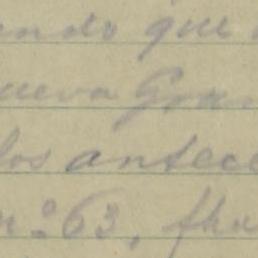 endo que
ueva Gran
los antece
n.º 63, fha